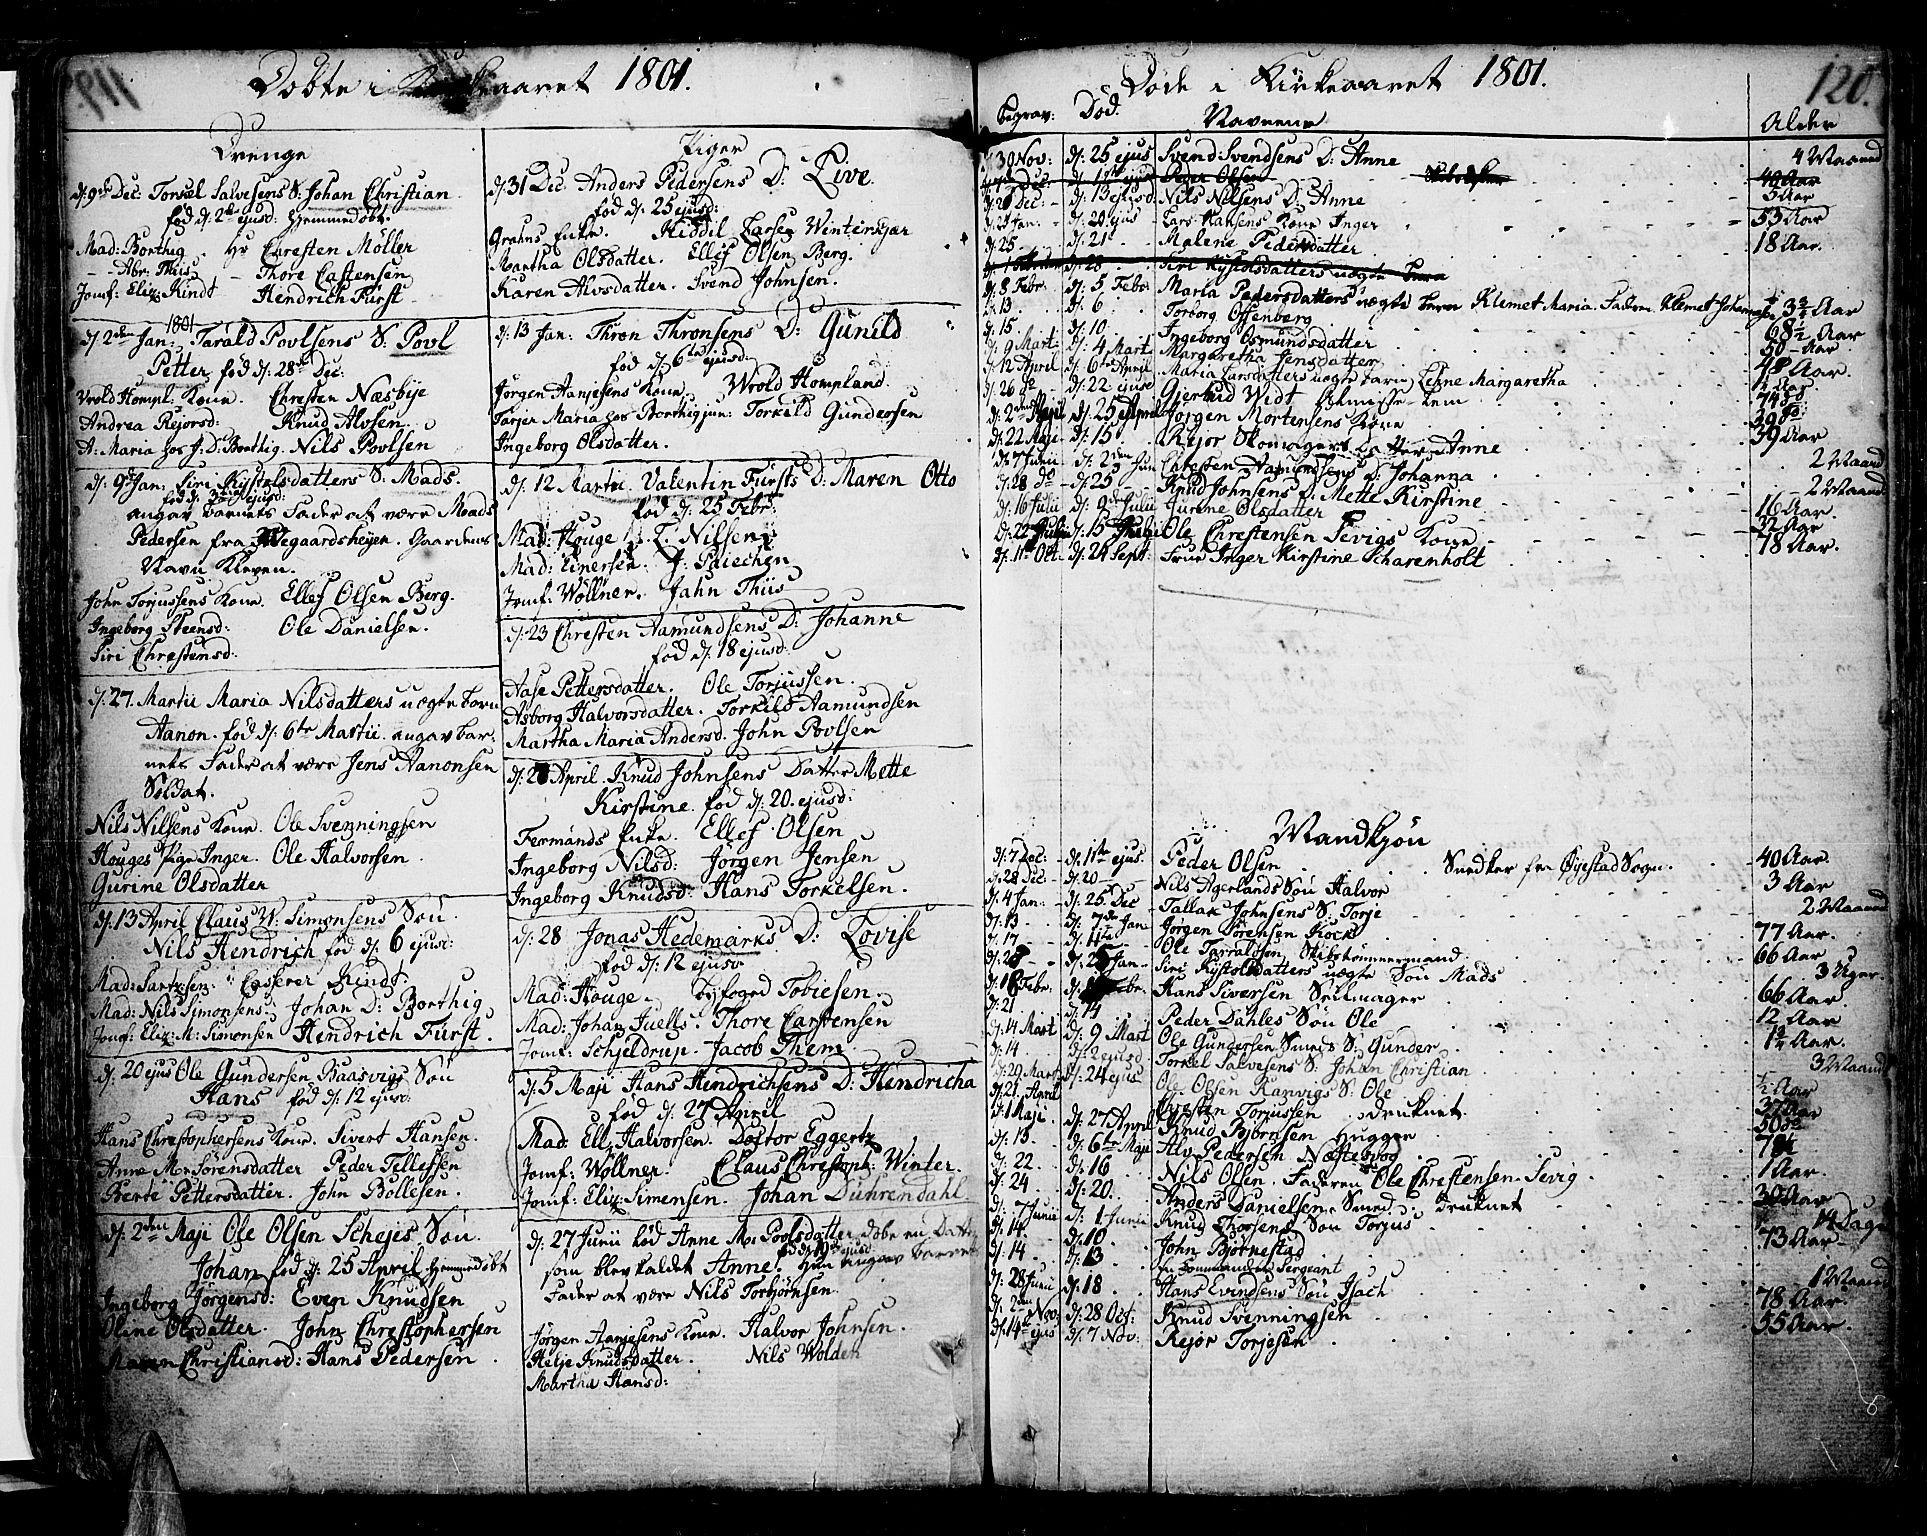 119.
Döbte i Kirkeaaret 1801.
Drenge
d. 9de Dec: Torkel Salvesens S. Johan Christian
fød d: 2de ejusd: hjemmedøbt.
Mad: Borthig. Hr Chresten Möller
- Abr. Thiis - Thore Castensen
Jomf: Eliz: Kindt Hendrich Fürst
1801
d 2den Jan: Tarald Povlsens S: Povl
Petter fød d: 28de Dec:
Vrold Hompl: Kone. Chresten Næsbÿe
Andrea Rejersd: Knud Alvsen.
A: Maria hos J. D: Borthig. Nils Povlsen
d: 9de Jan: Siri Kystelsdatters S: Mads.
fød d: 3die ejusd:
angav barnets Fader at være Mads
Pedersen fra Wegaardsheyen. Gaardens
Navn Kleven.
John Torjussens Kone. Ellef Olsen Berg.
Ingeborg Steensd: Ole Danielsen.
Siri Chrestensd:
d: 27. Martii Maria Nilsdatters uægte barn
Aanon. fød d: 6te Martii. angav bar-
nets Fader at være Jens Aanonsen
Soldat.
Nils Nilsens Kone. Ole Svenningsen
Houges Pige Inger. Ole Halvorsen
Gurine Olsdatter
d: 13 April Claus W: Simonsens Søn
Nils Hendrich fød d: 6 ejusd:
Mad: Sartzsen: Casserer Kindt
Mad: Nils Simonsens: Johan D: Borthig
Jomf: Eliz: M: Simonsen Hendrich Fürst.
d: 20 ejus Ole Gundersen Baasvigs Søn
Hans fød d: 12 ejusd:
Hans Christophersens Kone. Sivert Hansen.
Anne M: Sörensdatter Peder Tellefsen
Berte Pettersdatter. John Böllesen.
d: 2den Maji Ole Olsen Schejes Søn
Johan fød d: 25 April. hjemmedøbt
Ingeborg Jørgensd: Even Knudsen
Oline Olsdatter. John Christophersen
Maren Christiansd: Hans Pedersen.
Piger
d: 31 Dec. Anders Pedersens D: Live.
fød d: 25 ejusd:
Grahns Enke. Kiddil Larsen Winterkjær
Martha Olsdatter. Ellef Olsen Berg.
Karen Alvsdatter. Svend Johnsen.
d: 13 Jan: Thron Thronsens D: Gunild
fød d: 6te ejusd:
Jörgen Aanjesens Kone. Vrold Hompland.
Tarjer Maria hos Borthig jun: Torkild Gundersen
Ingeborg Olsdatter.
d: 12 Martii. Valentin Fürsts D: Maren Otto
fød d: 25 Febr:
Mad: Houge. L. Nilsen
Mad: Einersen: J: Paiechen
Jomf: Wöllner. Jahn Thiis
d: 23 Chresten Aamundsens D: Johanne
fød d: 18 ejusd:
Aase Pettersdatter. Ole Torjussen.
Asborg Halvorsdatter. Torkild Aamundsen
Martha Maria Andersd. John Povlsen
d: 2 April. Knud Johnsens Datter Mette
Kirstine. fød d: 20. ejusd:
Fermands Enke. Ellef Olsen
Ingeborg Nilsd: Jörgen Jensen
Ingeborg Knudsd: Hans Torkelsen.
d: 28 Jonas Hedemarks D: Lovise
fød d: 12 ejusd
Mad: Houge. Byfoged Tobiesen.
Mad: Johan Juells. Thore Carstensen
Jomf: Schjeldrup. Jacob Them.
d: 5 Maji Hans Hendrichsens D: Hendricha
fød d: 27 April
Mad: Ell: Halvorsen. Doctor Eggertz
Jomf: Wöllner. Claus Christoph: Winter.
Jomf: Eliz: Simensen. Johan Duhrendahl.
d: 27 Junii lod Anne M: Povlsdatter døbe en Datter
fød d: 19de ejusd
som blev kaldet Anne. hun angav barnets
Fader at være Nils Torbjörnsen.
Jörgen Aanjesens Kone. Halvor Johnsen.
Helje Knudsdatter. Nils Wolden
Martha Hansd:
120.
Døde i Kirkeaaret 1801.
begrav: Død. Navnene Alder
d 30 Nov: d: 25 ejus Svend Svendsens D: Anne 4 Maaned
d: 7de Dec: d: 1ste ejus Peder Olsen 40 Aar
d: 20 Dec: - d: 13 ejusd Nils Nilsens D: Anne 5 Aar
d: 24 Jan. - d: 20 ejus Lars Hansens Kone Inger 53 Aar
d: 25 d: 21 Malene Pedersdatter 18 Aar.
d: 1 Februar d: 28 Siri Kystelsdatters uægte barn
d: 8 Febr. d: 5 Febr. Maria Pedersdatters uægte barn Klemet Maria. Faderen Klemet Johannesen 3 3/4 Aar
d: 13 d: 6 Torborg Offenberg 68 1/2 Aar
d: 15 d: 10 Ingeborg Osmundsdatter 50 Aar
d: 9 Mart: d: 4 Mart Margaretha Jensdatter 48 Aar.
d: 12 April d: 6te April Maria Larsdatters uægte barn Lehne Margaretha
d: 26 de d: 22 ejusd Giertrud Widt Almisse Lem 74
d: 2den Maji d: 25 April Jörgen Mortensens Kone 39
d: 22 Maji d: 15 Rejer Skomagers Datter Anne 39 Aar
d: 7 Junii d: 2den Jun Chresten Aamundsens D: Johanna 2 Maaned
d: 28 do d: 25 Knud Johnsens D: Mette Kirstine 2 Maaned
d: 16 Julii d: 9de Julii Gurine Olsdatter 16 Aar.
d: 22 Julii d: 15 Julii Ole Chrestensen Sevigs Kone 32 Aar
d: 11te Oct. d: 24 Sept: Frue Inger Kirstine Scharenholt 78 Aar.
Mandkjøn
d: 7 Dec: d: 1ste ejus. Peder Olsen Snedker fra Øyestad Sogn. 40 Aar.
d: 28 Dec: d: 20 Nils Agerlands Søn Halvor 3 Aar
d: 4 Jan: d: 25 Dec Tallak Johnsens S: Torje 2 Maaned
d: 13 d: 7de Jan Jörgen Sörensen Kock 77 Aar.
d: 17 d: 11te Ole Tarraldsen Skibstömmermand 66 Aar
d: 2 d: 2 Jan Siri Kystelsdatters uægte Søn Mads 3 Uger
d: 18 Febr. Febr. Hans Siversen Seilmager 66 Aar.
d: 21 d: 14 Peder Dahles Søn Ole 12 Aar
d: 14 Mart d: 9 Mart Ole Gundersen Smeds S: Gunder 1 1/2 Aar.
d: 14 d: 2 ejusd Torkel Salvesens S: Johan Christian 3 Maaned
d: 29 Mart d: 24 ejus Ole Olsen Ranvigs S: Ole 1/2 Aar
d: 21 April Chresten Torjussen Druknet. 37 Aar
d: 1 Maji d: 27 April Knud Bjørnsen Hugger 50
d: 13 d: 6te Maji Alv Pedersen Næstevog 74
d: 22 d: 16 Nils Olsen. Faderen Ole Chrestensen Sevig 1 Aar.
d: 24 d: 20. Anders Danielsen Smed. druknet 30 Aar
d: 7 Junii d: 1 Junii Knud Thorsens Søn Torjus 14 Dage
d: 14 d: 10 John Bjørnestad 73 Aar
d: 14 d: 13 en Sergeant
d: 28 Junii d: 18 Hans Evindsens Søn Isach 1 Maaned
d: 2den Nov: d: 28 Oct: Knud Svenningsen 78 Aar
d: 14te ejus d: 7 Nov: Rejer Torjesen 55 Aar.